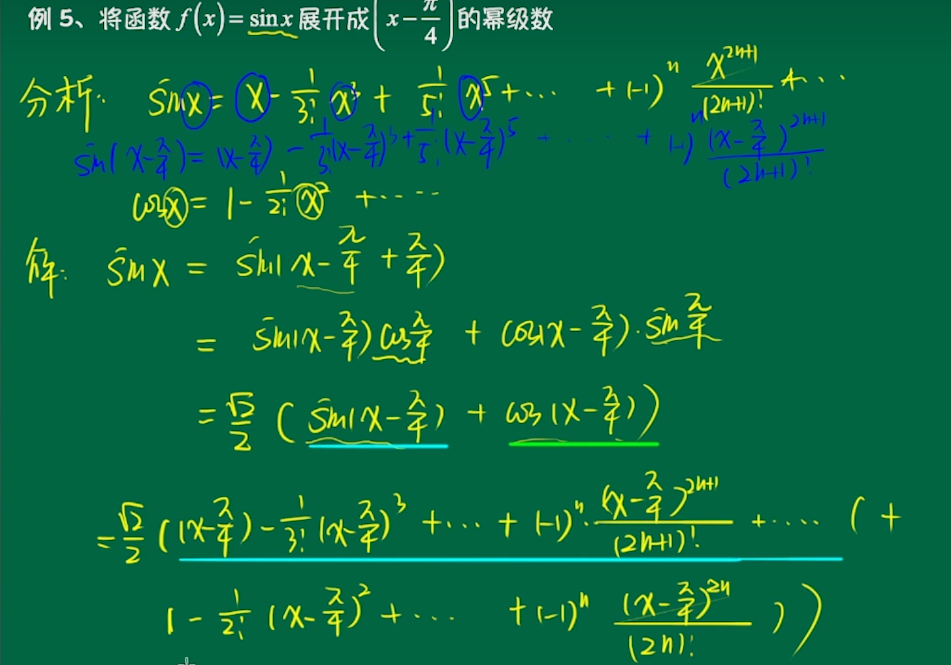 例 5、将函数 f(x)= sin x 展开成(x-π/4)的幂级数
分析: sinx = x - 1/3! x³ + 1/5! x⁵ + ... + (-1)ⁿ x²ⁿ⁺¹/(2n+1)! + ...
sin(x-π/4) = (x-π/4) - 1/3! (x-π/4)³ + 1/5! (x-π/4)⁵ + ... + (-1)ⁿ (x-π/4)²ⁿ⁺¹/(2n+1)!
cosx = 1 - 1/2! x² + ...
解: sinx = sin(x-π/4+π/4)
= sin(x-π/4) cosπ/4 + cos(x-π/4)·sinπ/4
= √2/2 ( sin(x-π/4) + cos(x-π/4))
= √2/2 ((x-π/4) - 1/3! (x-π/4)³ + ... + (-1)ⁿ·(x-π/4)²ⁿ⁺¹/(2n+1)! + .... ( +
1 - 1/2! (x-π/4)² + ... + (-1)ⁿ (x-π/4)²ⁿ/(2n)! ))